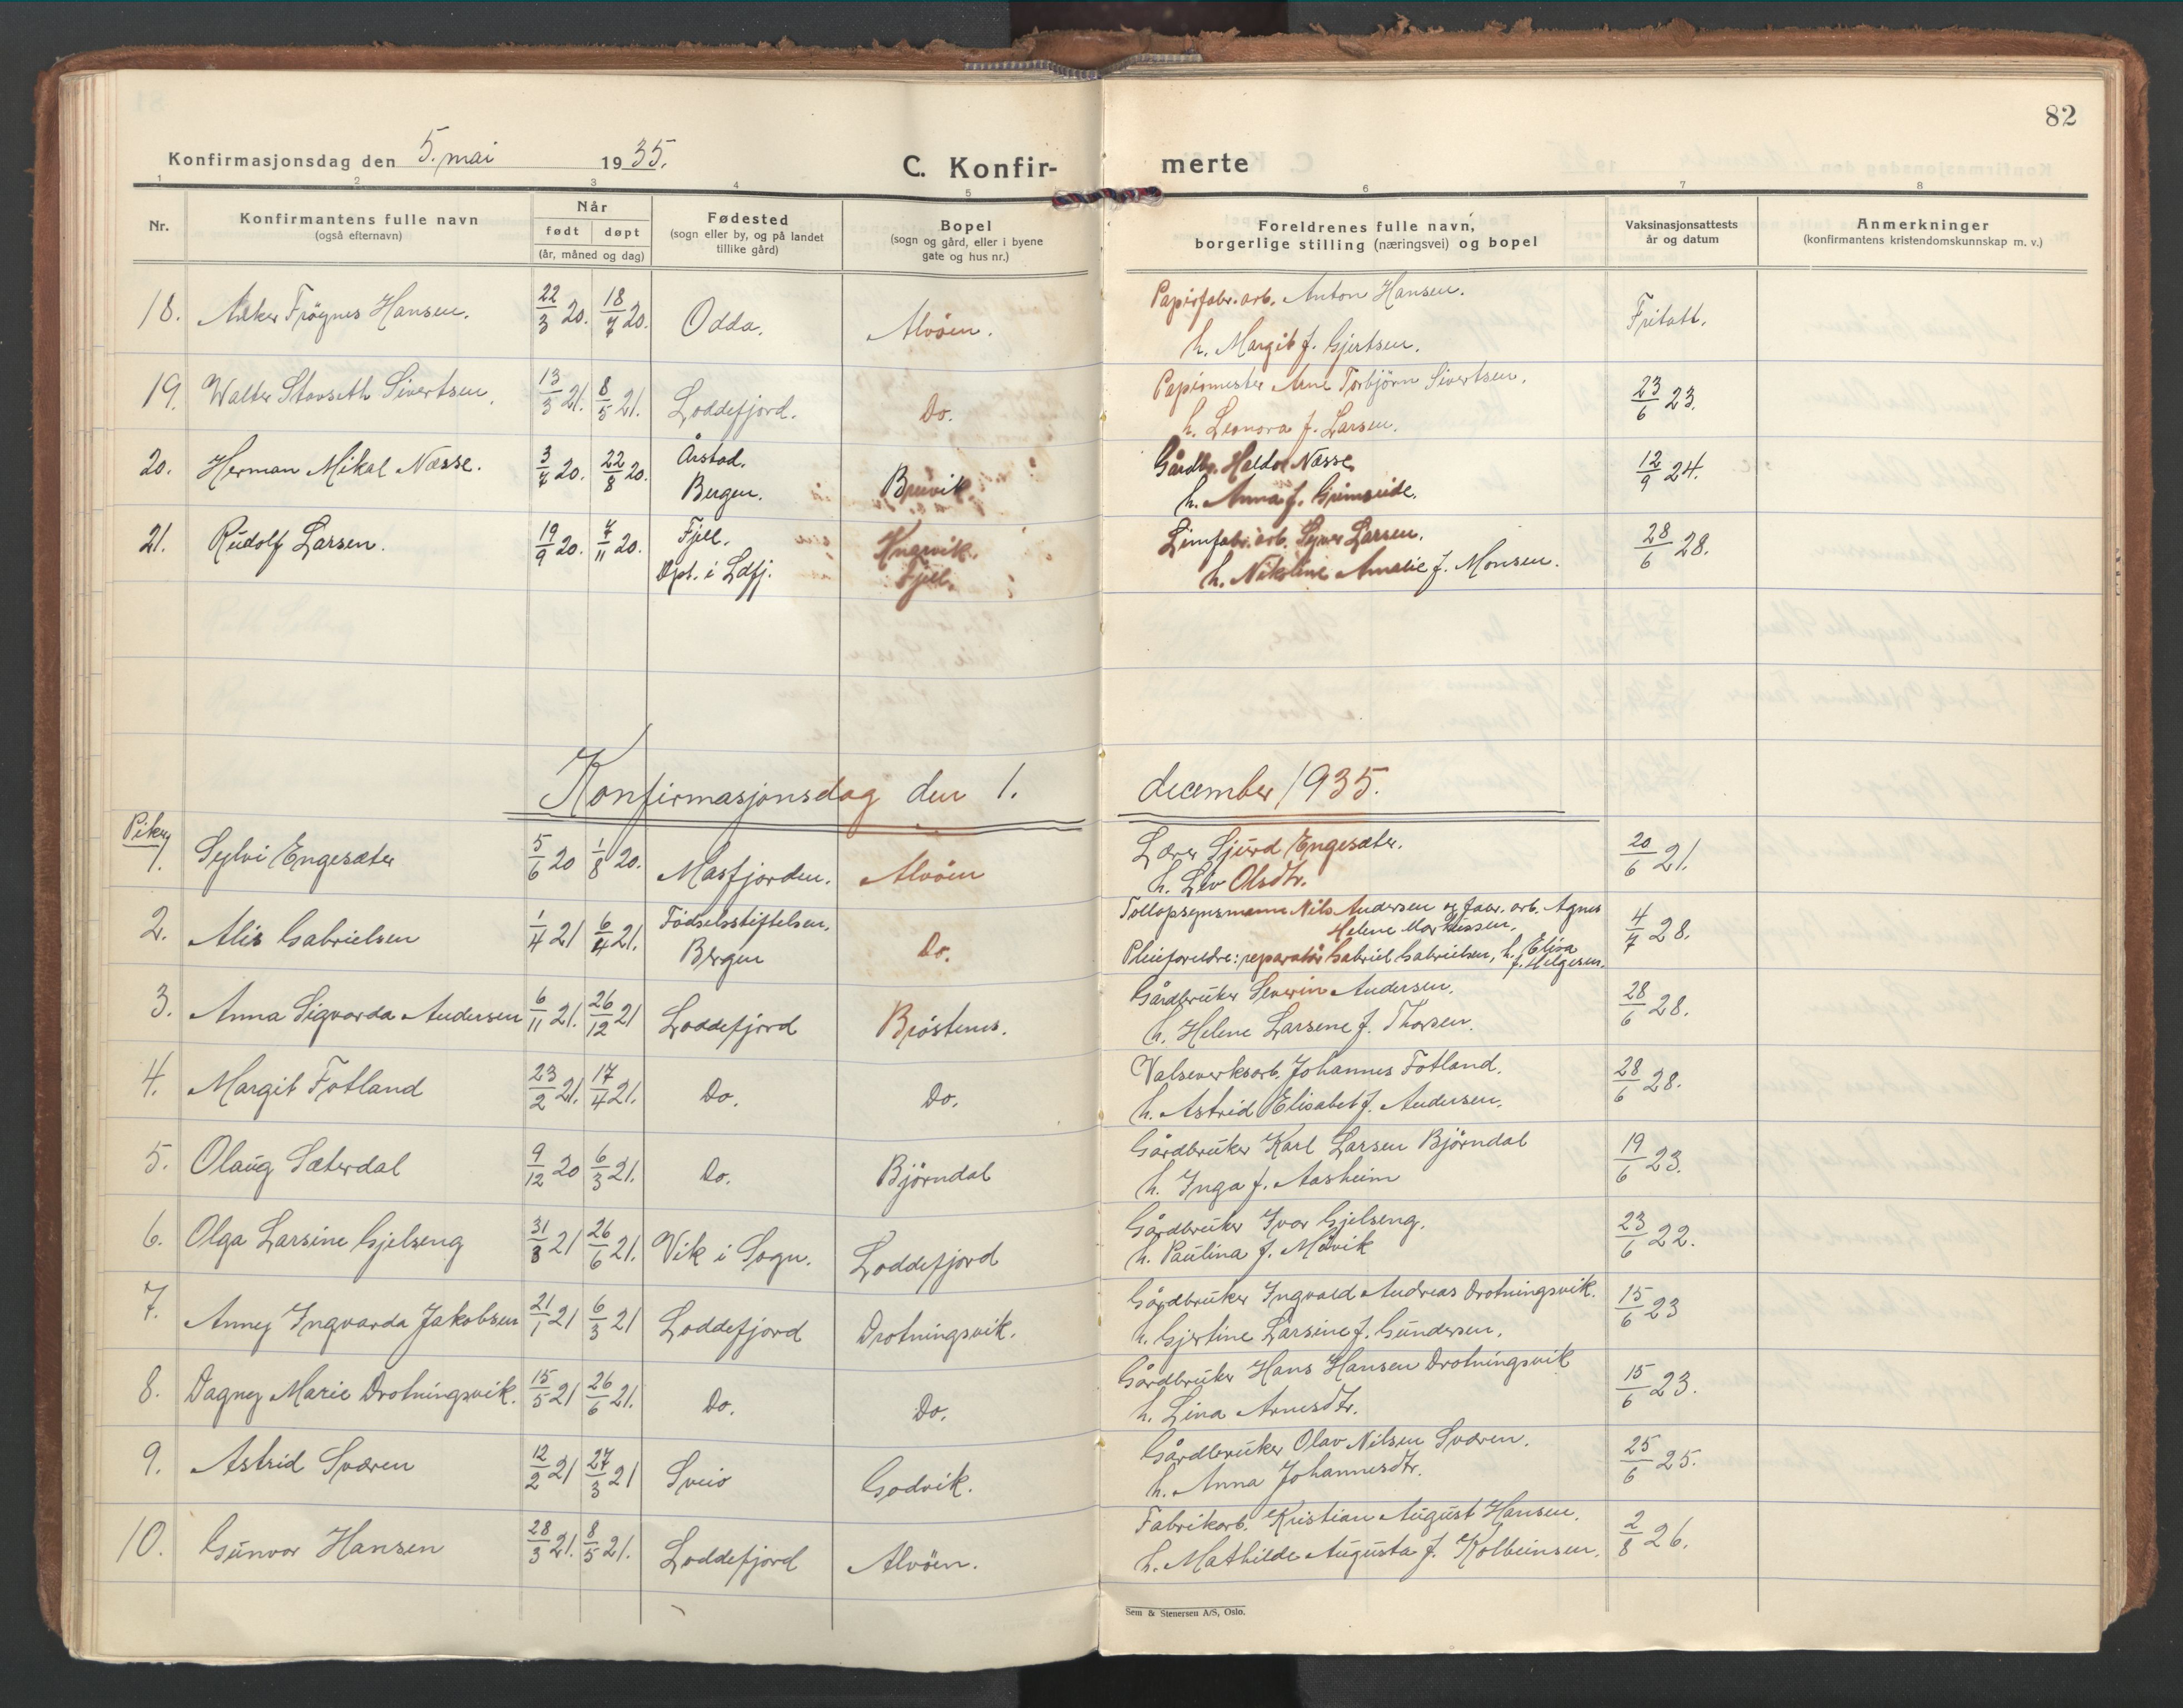 82
Konfirmasjonsdag den 5. mai 1935.
C. Konfir- merte
1 2 3 4 5 6 7 8
Nr. Konfirmantens fulle navn (også efternavn) Når født døpt (år, måned og dag) Fødested (sogn eller by, og på landet tillike gård) Bopel (sogn og gård, eller i byene gate og hus nr.) Foreldrenes fulle navn, borgerlige stilling (næringsvei) og bopel Vaksinasjonsattests år og datum Anmerkninger (konfirmantens kristendomskunnskap m. v.)
18. Anker Frögnes Hansen. 22/3 20. 18/7 20. Odda. Alvöen. Papirfabr. arb. Anton Hansen. Fritatt.
h. Margit f. Gjertsen.
19. Walter Stavseth Sivertsen. 13/3 21. 8/5 21. Loddefjord. Do. Papirmester Arne Torbjörn Sivertsen. 23/6 23.
h. Leonora f. Larsen.
20. Herman Mikal Næsse. 3/7 20. 22/8 20. Årstad, Bergen. Breivik Gårdbr. Haldor Næsse, 12/9 24.
h. Anna f. Grimseide.
21. Rudolf Larsen. 19/9 20. 7/11 20. Fjell. Döpt. i Ldfj. Knarvik. Fjell. Limfabr. arb. Larsen. 28/6 28.
h. Nikoline Amalie f. Monsen.
Konfirmasjonsdag den 1. december 1935.
Piker
1. Sylvi Engesæter 5/6 20 1/8 20. Masfjorden. Alvöen Lærer Sjurd Engesæter. 20/6 21.
h. Liv Olsdtr.
2. Alis Gabrielsen 1/4 21 6/4 21. Födselsstiftelsen, Bergen Do. Tollopsynsmann Nils Andersen og fabr. arb. Agnes Helene Martinssen. 4/7 28.
Pleieforeldre: reparatör Gabriel Gabrielsen, h. Elisa f. Helgesen.
3. Anna Sigvarda Andersen 6/11 21. 26/12 21 Loddefjord Bröstenes. Gårdbruker Severin Andersen. 28/6 28.
h. Helene Larsene f. Thorsen.
4. Margit Fotland 23/2 21. 17/4 21. Do. Do. Valseverksarb. Johannes Fotland. 28/6 28.
h. Astrid Elisabet f. Andersen.
5. Olaug Sæterdal 9/12 20 6/3 21. Do. Björndal Gårdbruker Karl Larsen Björndal 19/6 23.
h. Inga f. Aasheim
6. Olga Larsine Gjelseng 31/3 21 26/6 21. Vik i Sogn. Loddefjord Gårdbruker Ivar Gjelseng. 23/6 22.
h. Paulina f. Målvik
7. Anny Ingvarda Jakobsen 21/1 21 6/3 21 Loddefjord Drotningsvik. Gårdbruker Ingvald Andreas Drotningsvik. 15/6 23
h. Gjertine Larsine f. Gundersen.
8. Dagny Marie Drotningsvik. 15/5 21 26/6 21. Do. Do. Gårdbruker Hans Hansen Drotningsvik 15/6 23.
h. Lina Arnesdtr.
9. Astrid Sværen 12/2 21 27/3 21 Sveio Godvik. Gårdbruker Olav Nilsen Sværen. 25/6 25.
h. Anna Johannesdtr.
10. Gunvor Hansen 28/3 21. 8/5 21. Loddefjord Alvöen. Fabrikarb. Kristian August Hansen. 2/8 26.
h. Mathilde Augusta f. Kolbeinsen.
Sem & Stenersen A/S, Oslo.